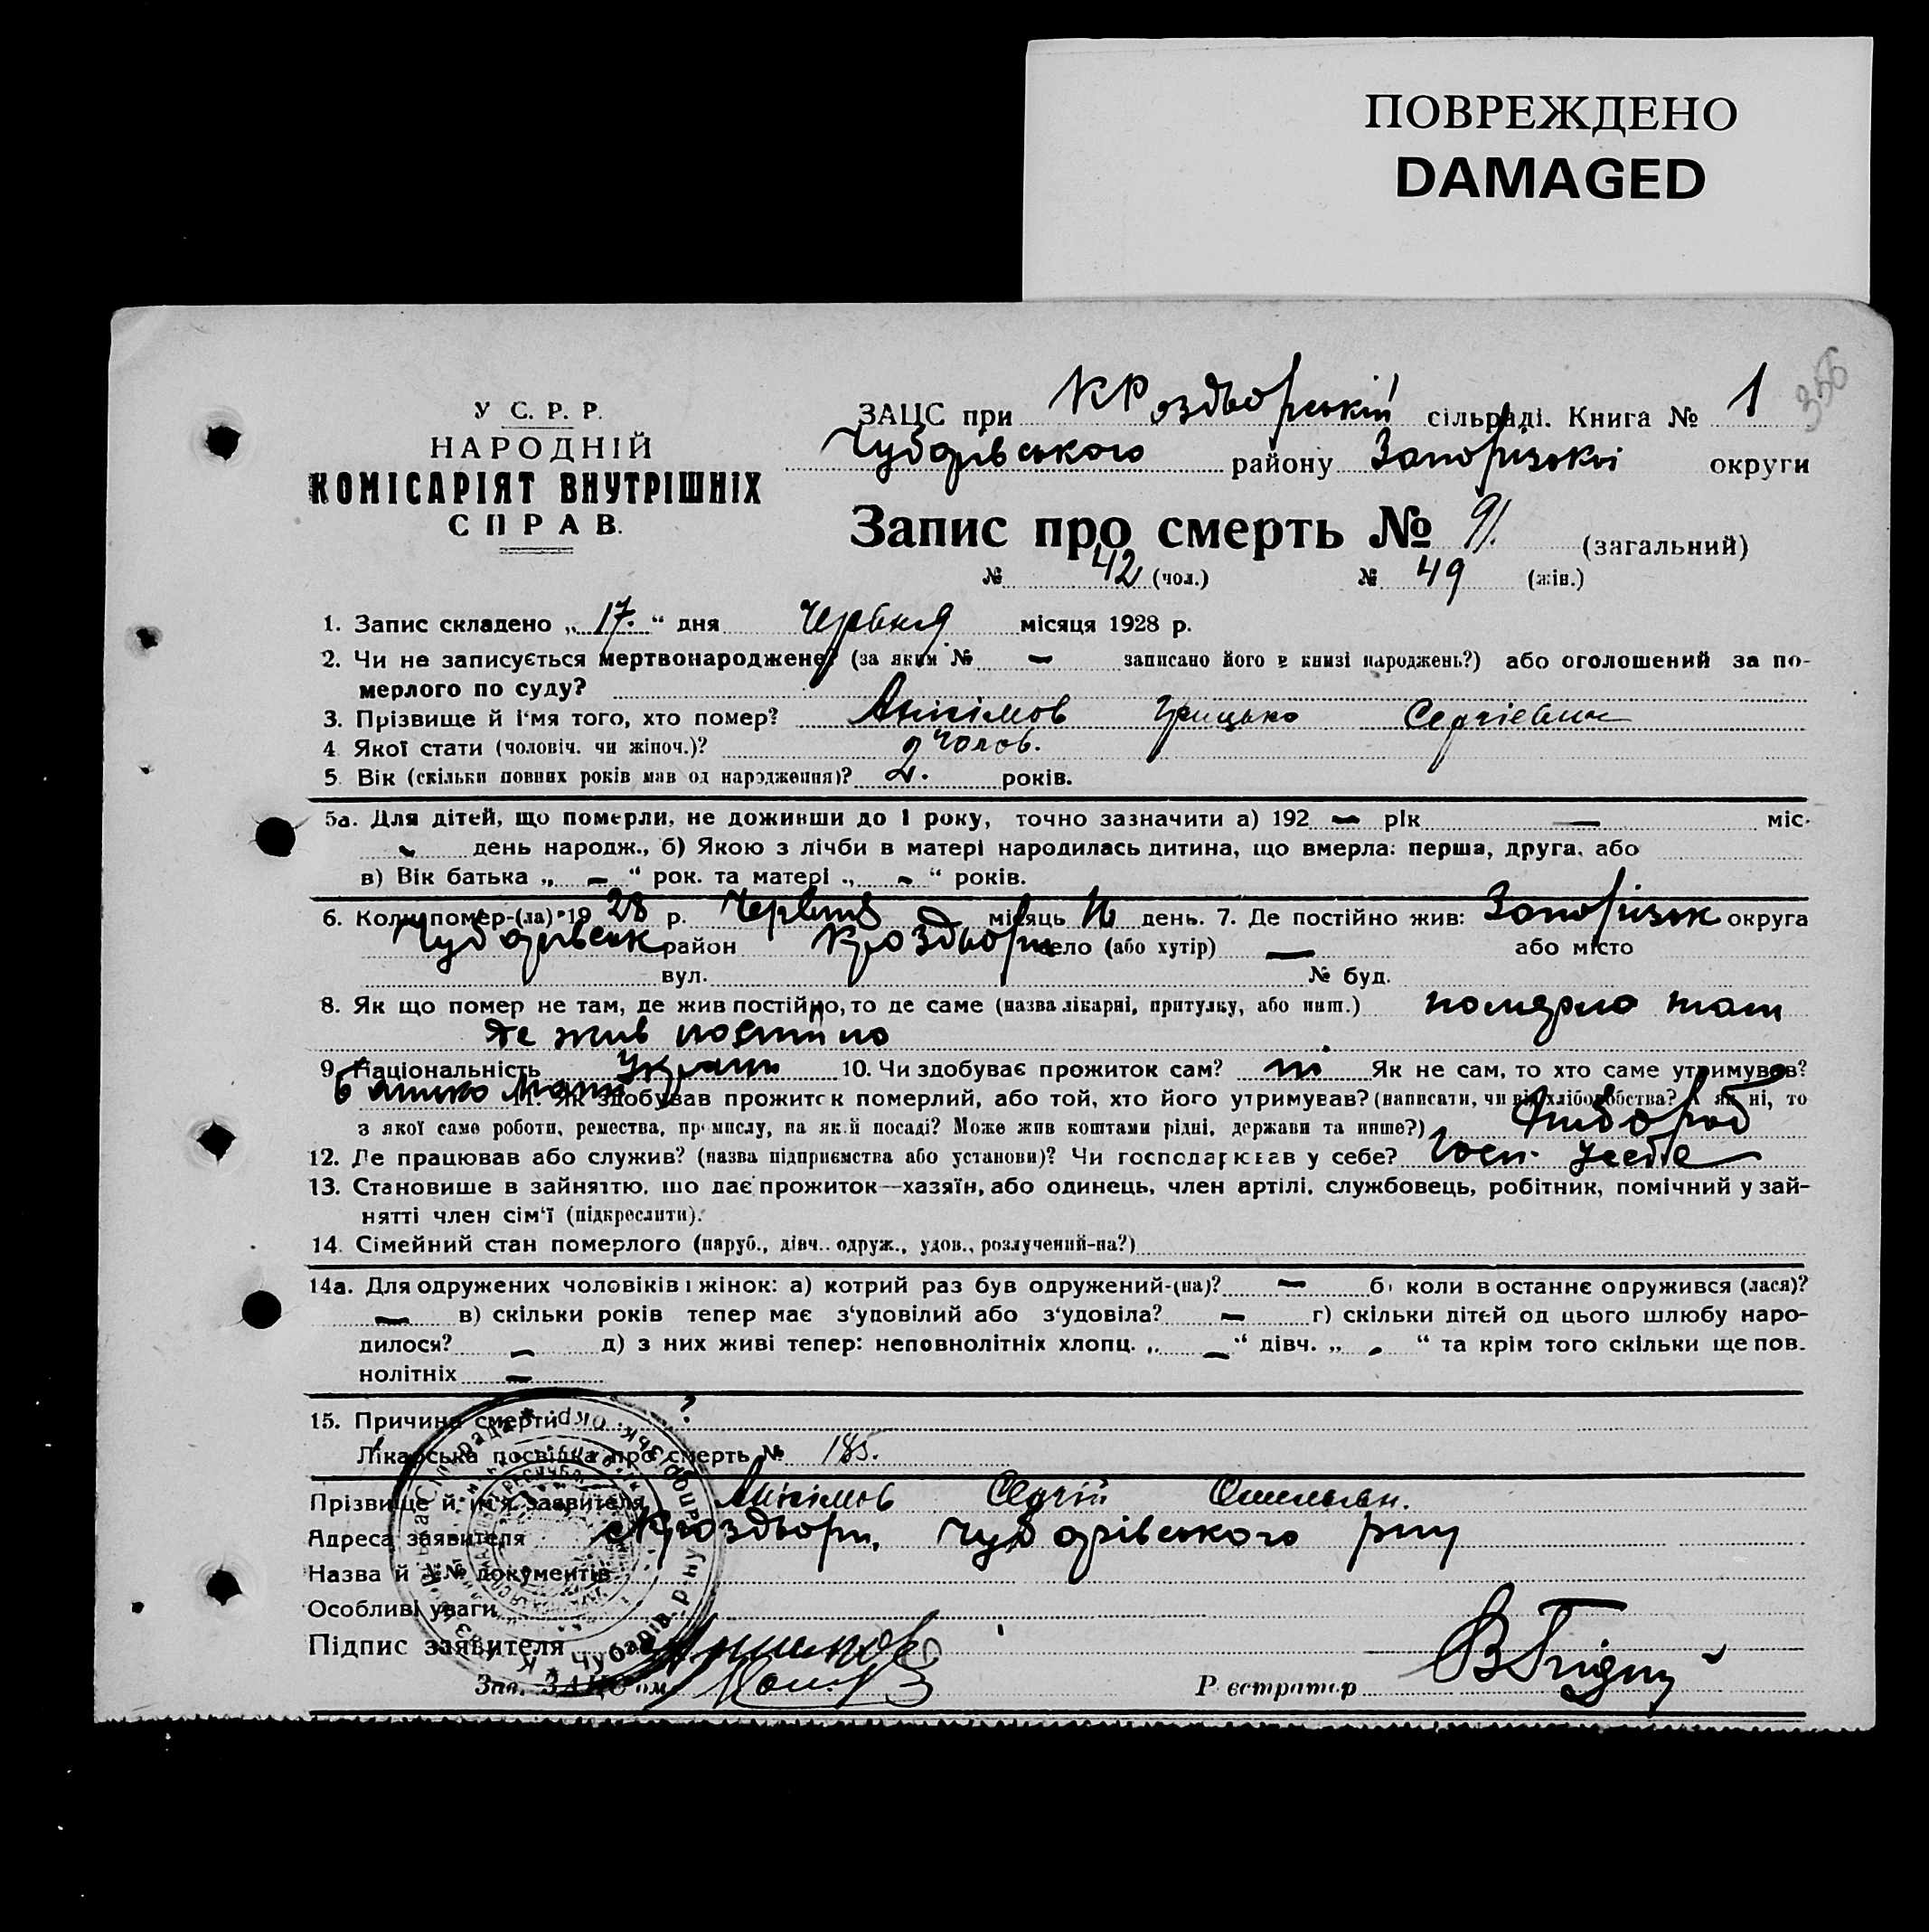 ПОВРЕЖДЕНО
DAMAGED
356
У С. Р. Р.
НАРОДНІЙ
КОМІСАРІЯТ ВНУТРІШНІХ
СПРАВ.
ЗАЦС при КРоздорській сільраді. Книга № 1
Чубарівського району Запорізької округи
Запис про смерть № 91. (загальний)
№ 42 (чол.) № 49 (жін.)
1. Запис складено „17.“ дня Червня місяця 1928 р.
2. Чи не записується мертвонароджене? (за яким № — записано його в книзі народжень?) або оголошений за по-
мерлого по суду?
3. Прізвище й ім'я того, хто помер? Анісімов Грицько Сергієвич
4. Якої стати (чоловіч. чи жіноч.)? Чолов.
5. Вік (скільки повних років мав од народження)? 2. років.
5а. Для дітей, що померли, не доживши до 1 року, точно зазначити а) 192 — рік — міс.
— день народж., б) Якою з лічби в матері народилась дитина, що вмерла: перша, друга, або
в) Вік батька „ — “ рок. та матері „ — “ років.
6. Коли помер-(ла) 1928 р. Червня місяць 16 день. 7. Де постійно жив: Запорізьк округа
Чубарівськ район село (або хутір) — або місто
вул. № буд.
8. Як що помер не там, де жив постійно, то де саме (назва лікарні, притулку, або инш.) померло там
де жив постійно
9. Національність Україн 10. Чи здобуває прожиток сам? ні Як не сам, то хто саме утримував?
батько мати 11. Як здобував прожиток померлий, або той, хто його утримував? (написати, чи від хліборобства? А як ні, то
з якої саме роботи, ремества, промислу, на якій посаді? Може жив коштами рідні, держави та инше?) Хлібороб
12. Де працював або служив? (назва підприємства або установи)? Чи господарював у себе? Госп. у себе
13. Становище в зайняттю, що дає прожиток—хазяїн, або одинець, член артілі, службовець, робітник, помічний у зай-
нятті член сім'ї (підкреслити).
14. Сімейний стан померлого (паруб., дівч., одруж., удов., розлучений-на?)
14а. Для одружених чоловіків і жінок: а) котрий раз був одружений-(на)? — б) коли в останнє одружився (лася)?
— в) скільки років тепер має з'удовілий або з'удовіла? — г) скільки дітей од цього шлюбу наро-
дилося? — д) з них живі тепер: неповнолітніх хлопц. „ — “ дівч. „ — “ та крім того скільки ще пов.
нолітніх —
15. Причина смерти ?
Лікарська посвідка про смерть № 185.
Прізвище й ім'я заявителя Анісімов Сергій Омельян.
Адреса заявителя Чубарівського р-ну
Назва й №№ документів
Особливі уваги
Підпис заявителя
Зав. ЗАЦС'ом Реєстратор
Чубарів р-ну